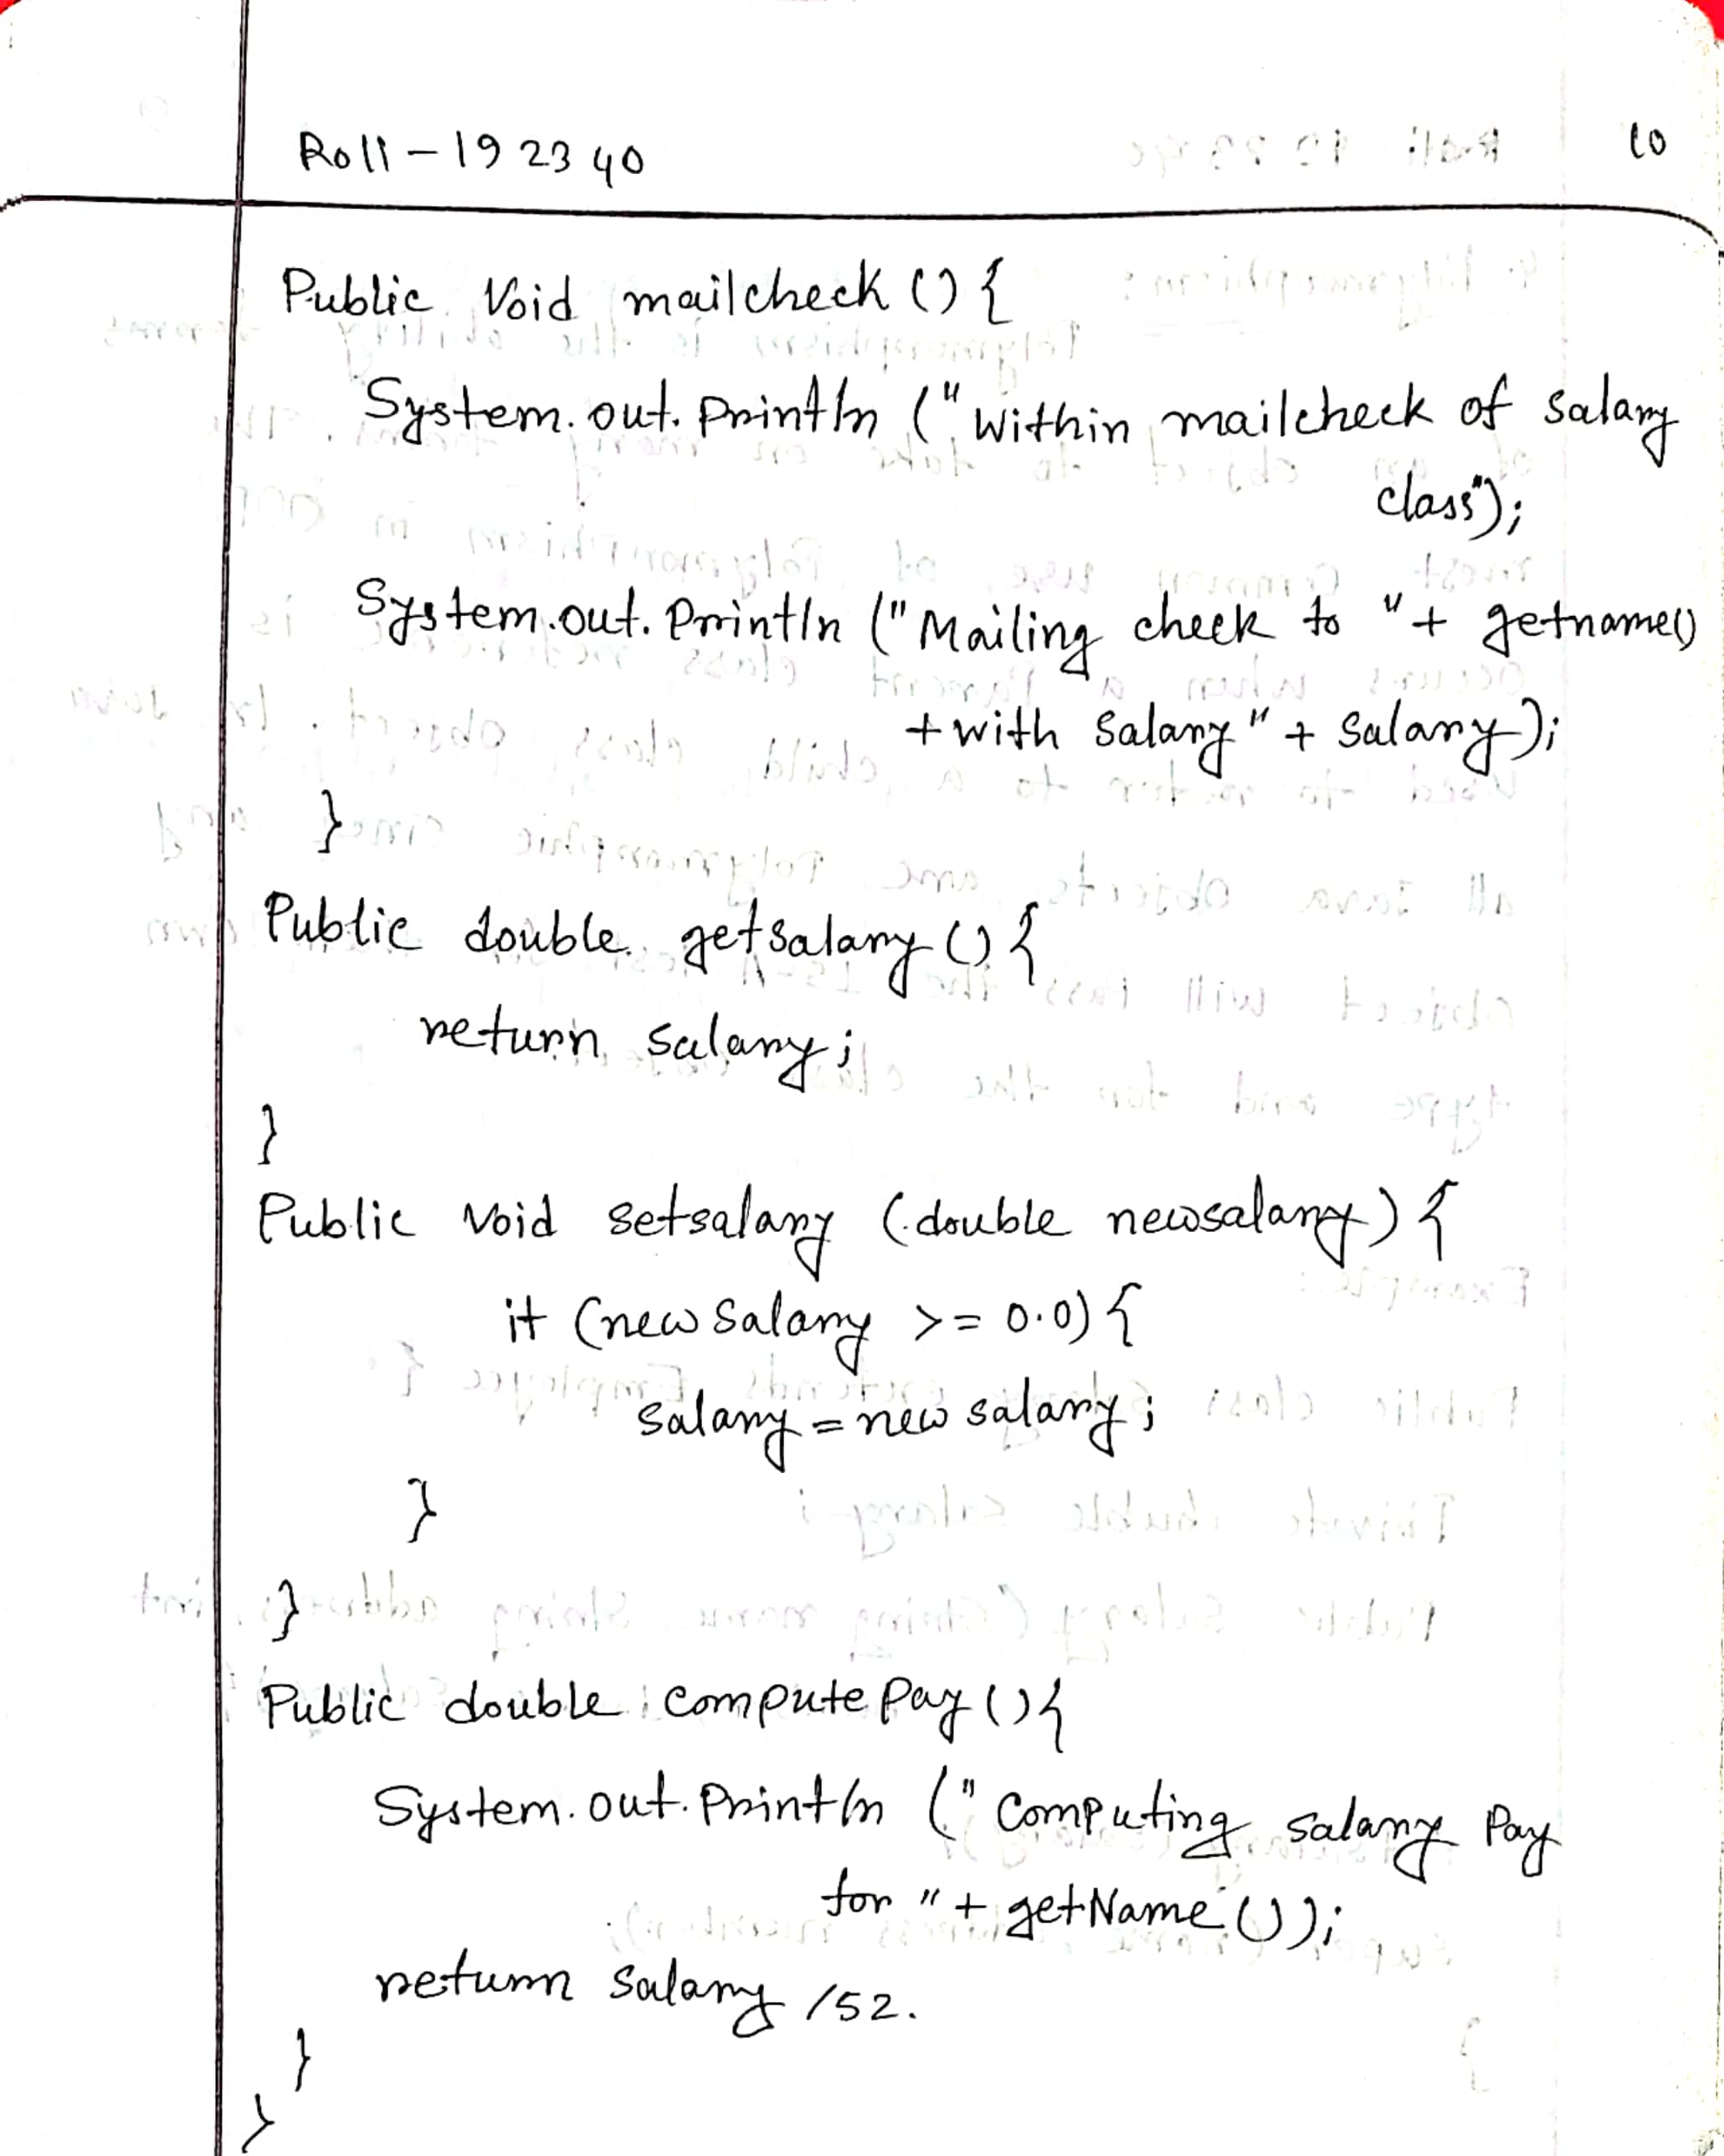 Roll-192340
10
Public Void mailcheck () {
System.out.Println ("Within mailcheck of salary
class");
System.out.Println ("Mailing check to "+ getname()
+with Salary" + Salary);
}
Public double getsalary () {
return salary;
}
Public void setsalary (double newsalary) {
if (new Salary >= 0.0) {
salary = new salary;
}
}
Public double compute Pay () {
System.out.Println ("Computing salary Pay
for "+ getName ());
return Salary /52.
}
}